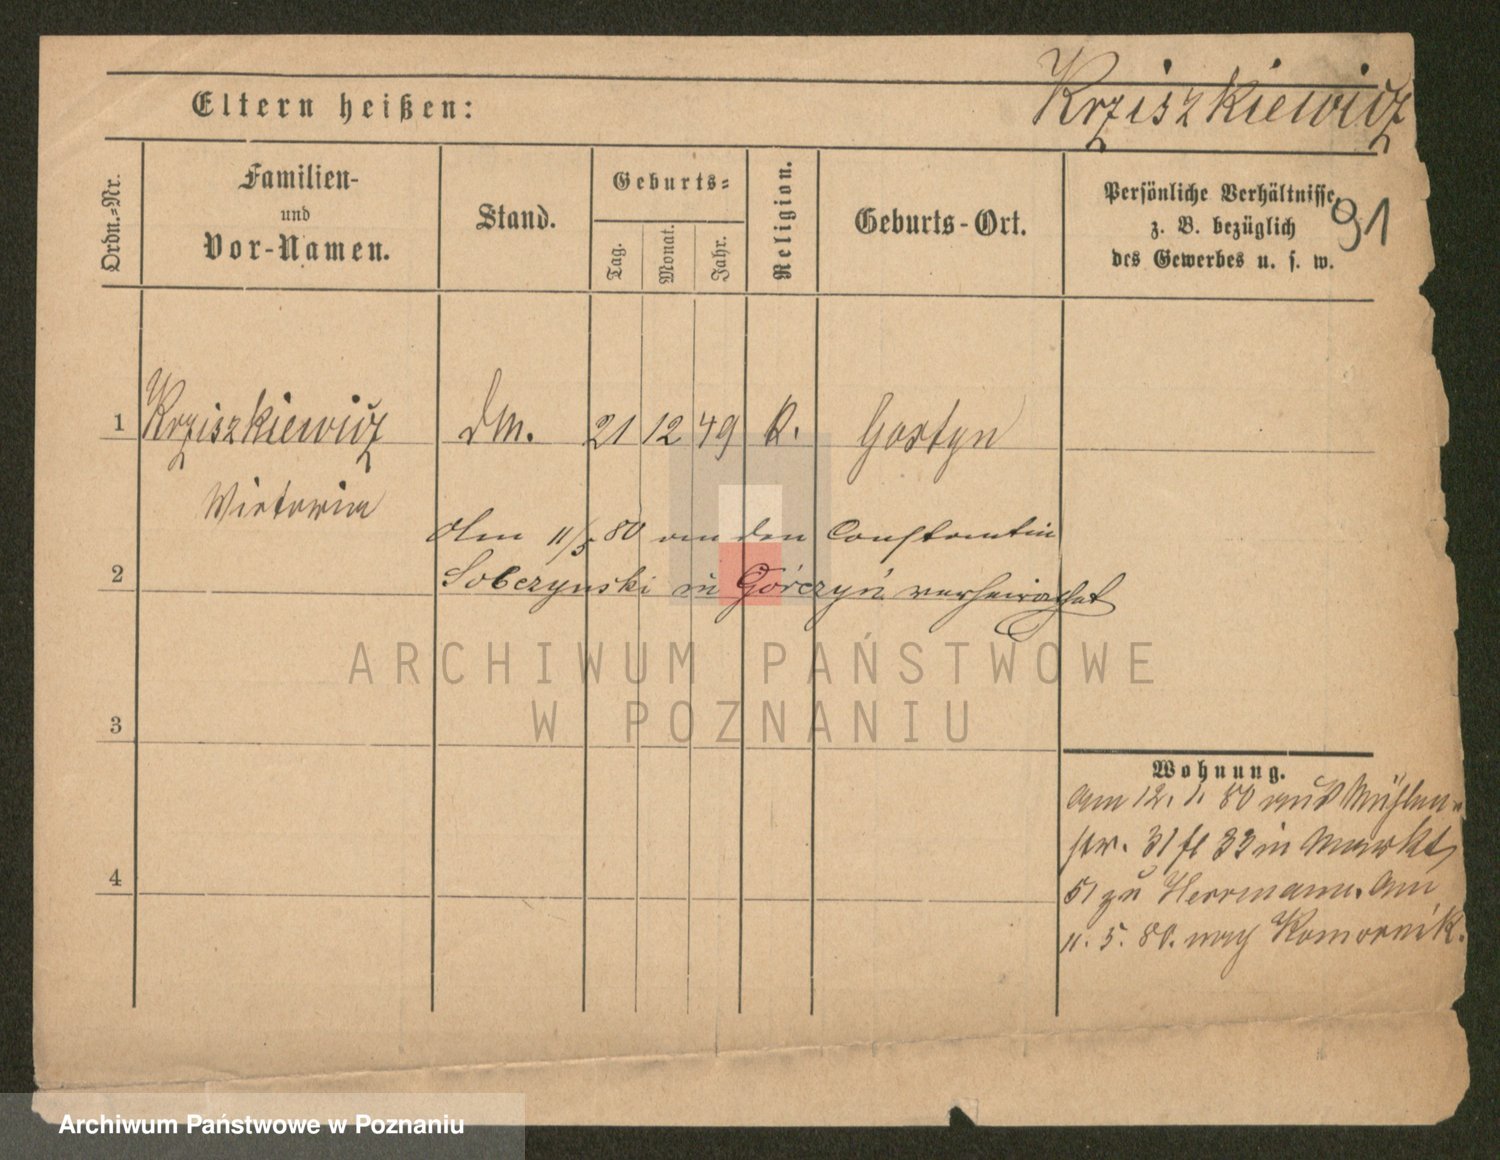 Krziszkiewicz
Eltern heißen:
91
Ordn.-Nr.
Familien-
und
Vor-Namen.
Stand.
Geburts-
Tag.
Monat.
Jahr.
Religion.
Geburts-Ort.
Persönliche Verhältnisse,
z. B. bezüglich
des Gewerbes u. s. w.
1 Krziszkiewicz DM. 21 12 49 K. Gostyn
Victoria
Am 11/5 80 an den Constantin
2 Sobczynski in Górczyń verheirathet
ARCHIWUM PAŃSTWOWE
W POZNANIU
3
Wohnung.
am 12. 1. 80 aus Mühlen-
str. 31 33 in Markt
4
51 zu Herrmann. Am
11. 5. 80. nach Komornik.
Archiwum Państwowe w Poznaniu